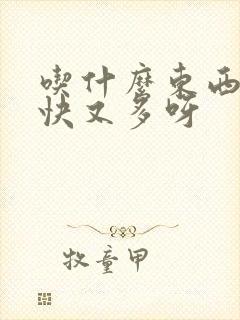 喫什麼東西
快又多呀
牧童甲